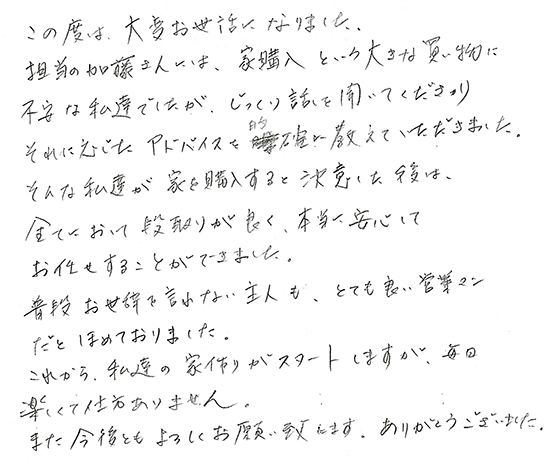 この度は、大変お世話になりました。
担当の加藤さんには、家購入という大きな買い物に
不安な私達でしたが、じっくり話しを聞いてくださり
それに応じたアドバイスを的確に教えていただきました。
そんな私達が家を購入すると決意した後は、
全てにおいて段取りが良く、本当に安心して
お任せすることができました。
普段お世辞を言わない主人も、とても良い営業マン
だとほめておりました。
これから、私達の家作りがスタートしますが、毎日
楽しくて仕方ありません。
また今後ともよろしくお願い致します。ありがとうございました。